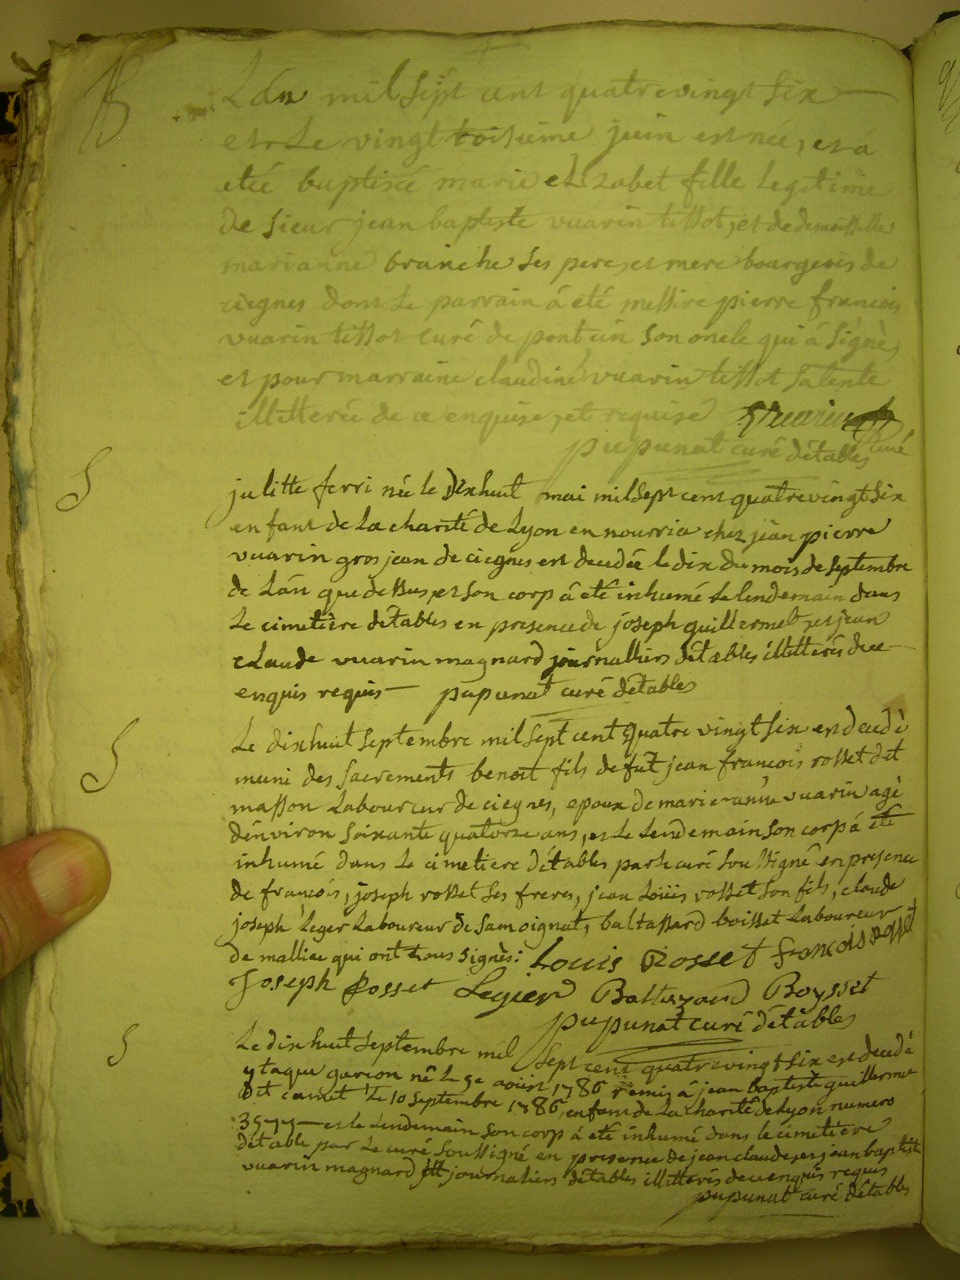 B
L'an mil sept cent quatrevingt six
et Le vingt troisieme juin est née, et a
eteé baptiseé marie elizabet fille legitime
de sieur jean baptiste vuarin tissot, et de demoiselle
marianne brunche ses pere, et mere bourgeois de
ciegnes dont Le parrain á eté messire pierre francois
vuarin tissot curé de pontcin son oncle qui á signè,
et pour marraine claudine vuarin tissot sa tente
illitereé de ce enquise, et requise Vuarin curé
pupunat curé détables
S
julitte ferri née le Dixhuit mai mil sept cent quatrevingt six
enfant de La charité de Lyon en nourrice chez jean pierre
vuarin gros jean de ciegnes est decedeé le dix du mois de septembre
de L'an que dessus, et son corp á eté inhumé Le lendemain dans
Le cimetière détables en presence de joseph guillermet, et jean
claude vuarin magnard journalliers détables illitterés de ce
enquis requis — pupunat curé détables
S
Le dixhuit septembre mil sept cent quatre vingt six est decedè
muni des sacrements benoit fils de fut jean francois rosset dit
masson Laboureur de ciegnes, epoux de marie anne vuarin agè
d'environ soixante quatorze ans, et Le Lendemain son corp á eté
inhumé dans Le cimetiere détables par le curé soussigné en presence
de francois, joseph rosset ses freres, jean Loüis rosset son fils, claude
joseph Leger Laboureur de samoignat, baltassard boisset Laboureur
de mallieu qui ont tous signès: Louis Rosset francois Rosset
Joseph Rosset Legier Baltazard Boysset
pupunat curé détables
S
Le dixhuit septembre mil sept cent quatrevingt six est decedé
ytaque garcon né Le 5e aoust 1786 remis á jean baptiste guillermet
dit camet Le 10 septembre 1786, enfant de La charité de Lyon numero
— et Le Lendemain son corp á eté inhumé dans le cimetiere
détable par Le curé soussigné en presence de jean claude, et jean baptiste
vuarin magnard journaliers détables illitterés de ce enquis requis
pupunat curé détables